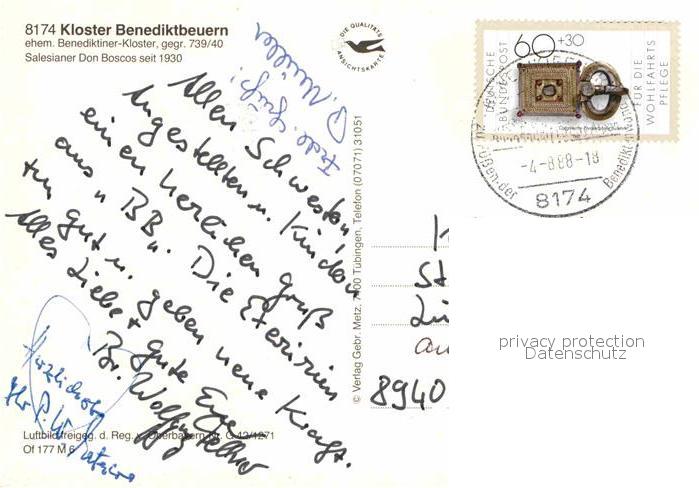 8174 Kloster Benediktbeuern
ehem. Benediktiner-Kloster, gegr. 739/40
Salesianer Don Boscos seit 1930
DIE QUALITÄTS
ANSICHTSKARTE
DEUTSCHE
BUNDESPOST
60+30
FÜR DIE
WOHLFAHRTS
PFLEGE
-4-8.88-18
zu Füßen der
Benedikt
8174
Allen Schwestern,
Angestellten u. Kindern
einen herzlichen Gruß
aus "BB". Die Exerzitien
tun gut u. geben neue Kraft.
Alles Liebe & gute
Br. Wolfgang
Frdl. Gruß!
D. Müller
Herzlichst
Ihr P. W.
© Verlag Gebr. Metz, 7400 Tübingen, Telefon (07071) 31051
8940
Luftbild freigeg. d. Reg. v. Oberbayern Nr. G 43/1271
Of 177 M 6
privacy protection
Datenschutz